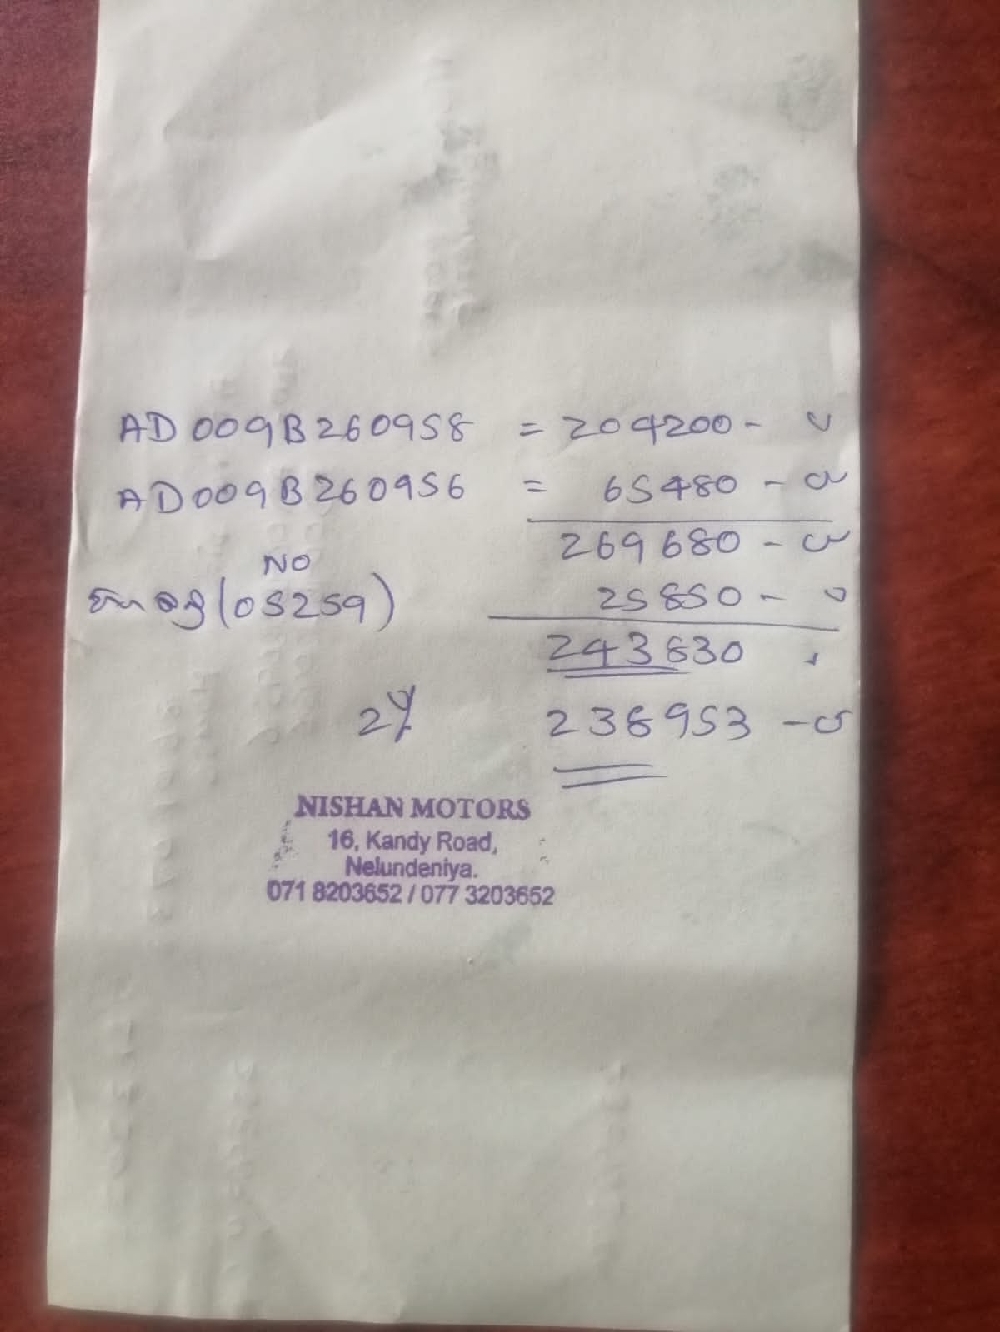 AD009B260958 = 204200 -
AD009B260956 = 65480 -
269680 -
NO
(05259) 25850 -
243830
2% 238953 -
NISHAN MOTORS
16, Kandy Road,
Nelundeniya.
071 8203652 / 077 3203652